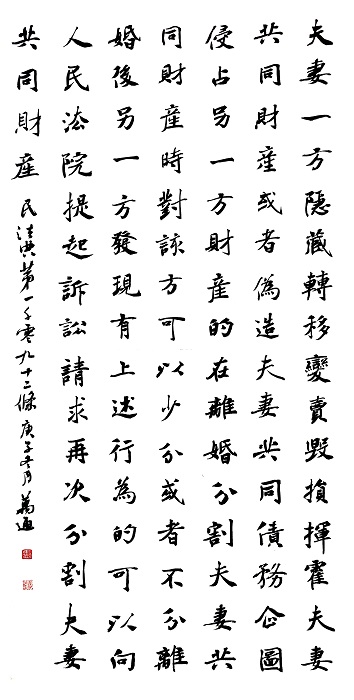 夫妻一方隱藏轉移變賣毀損揮霍夫妻
共同財產或者偽造夫妻共同債務企圖
侵占另一方財產的在離婚分割夫妻共
同財產時對該方可以少分或者不分離
婚後另一方發現有上述行為的可以向
人民法院提起訴訟請求再次分割夫妻
共同財產 民法典第一千零九十二條庚子冬月